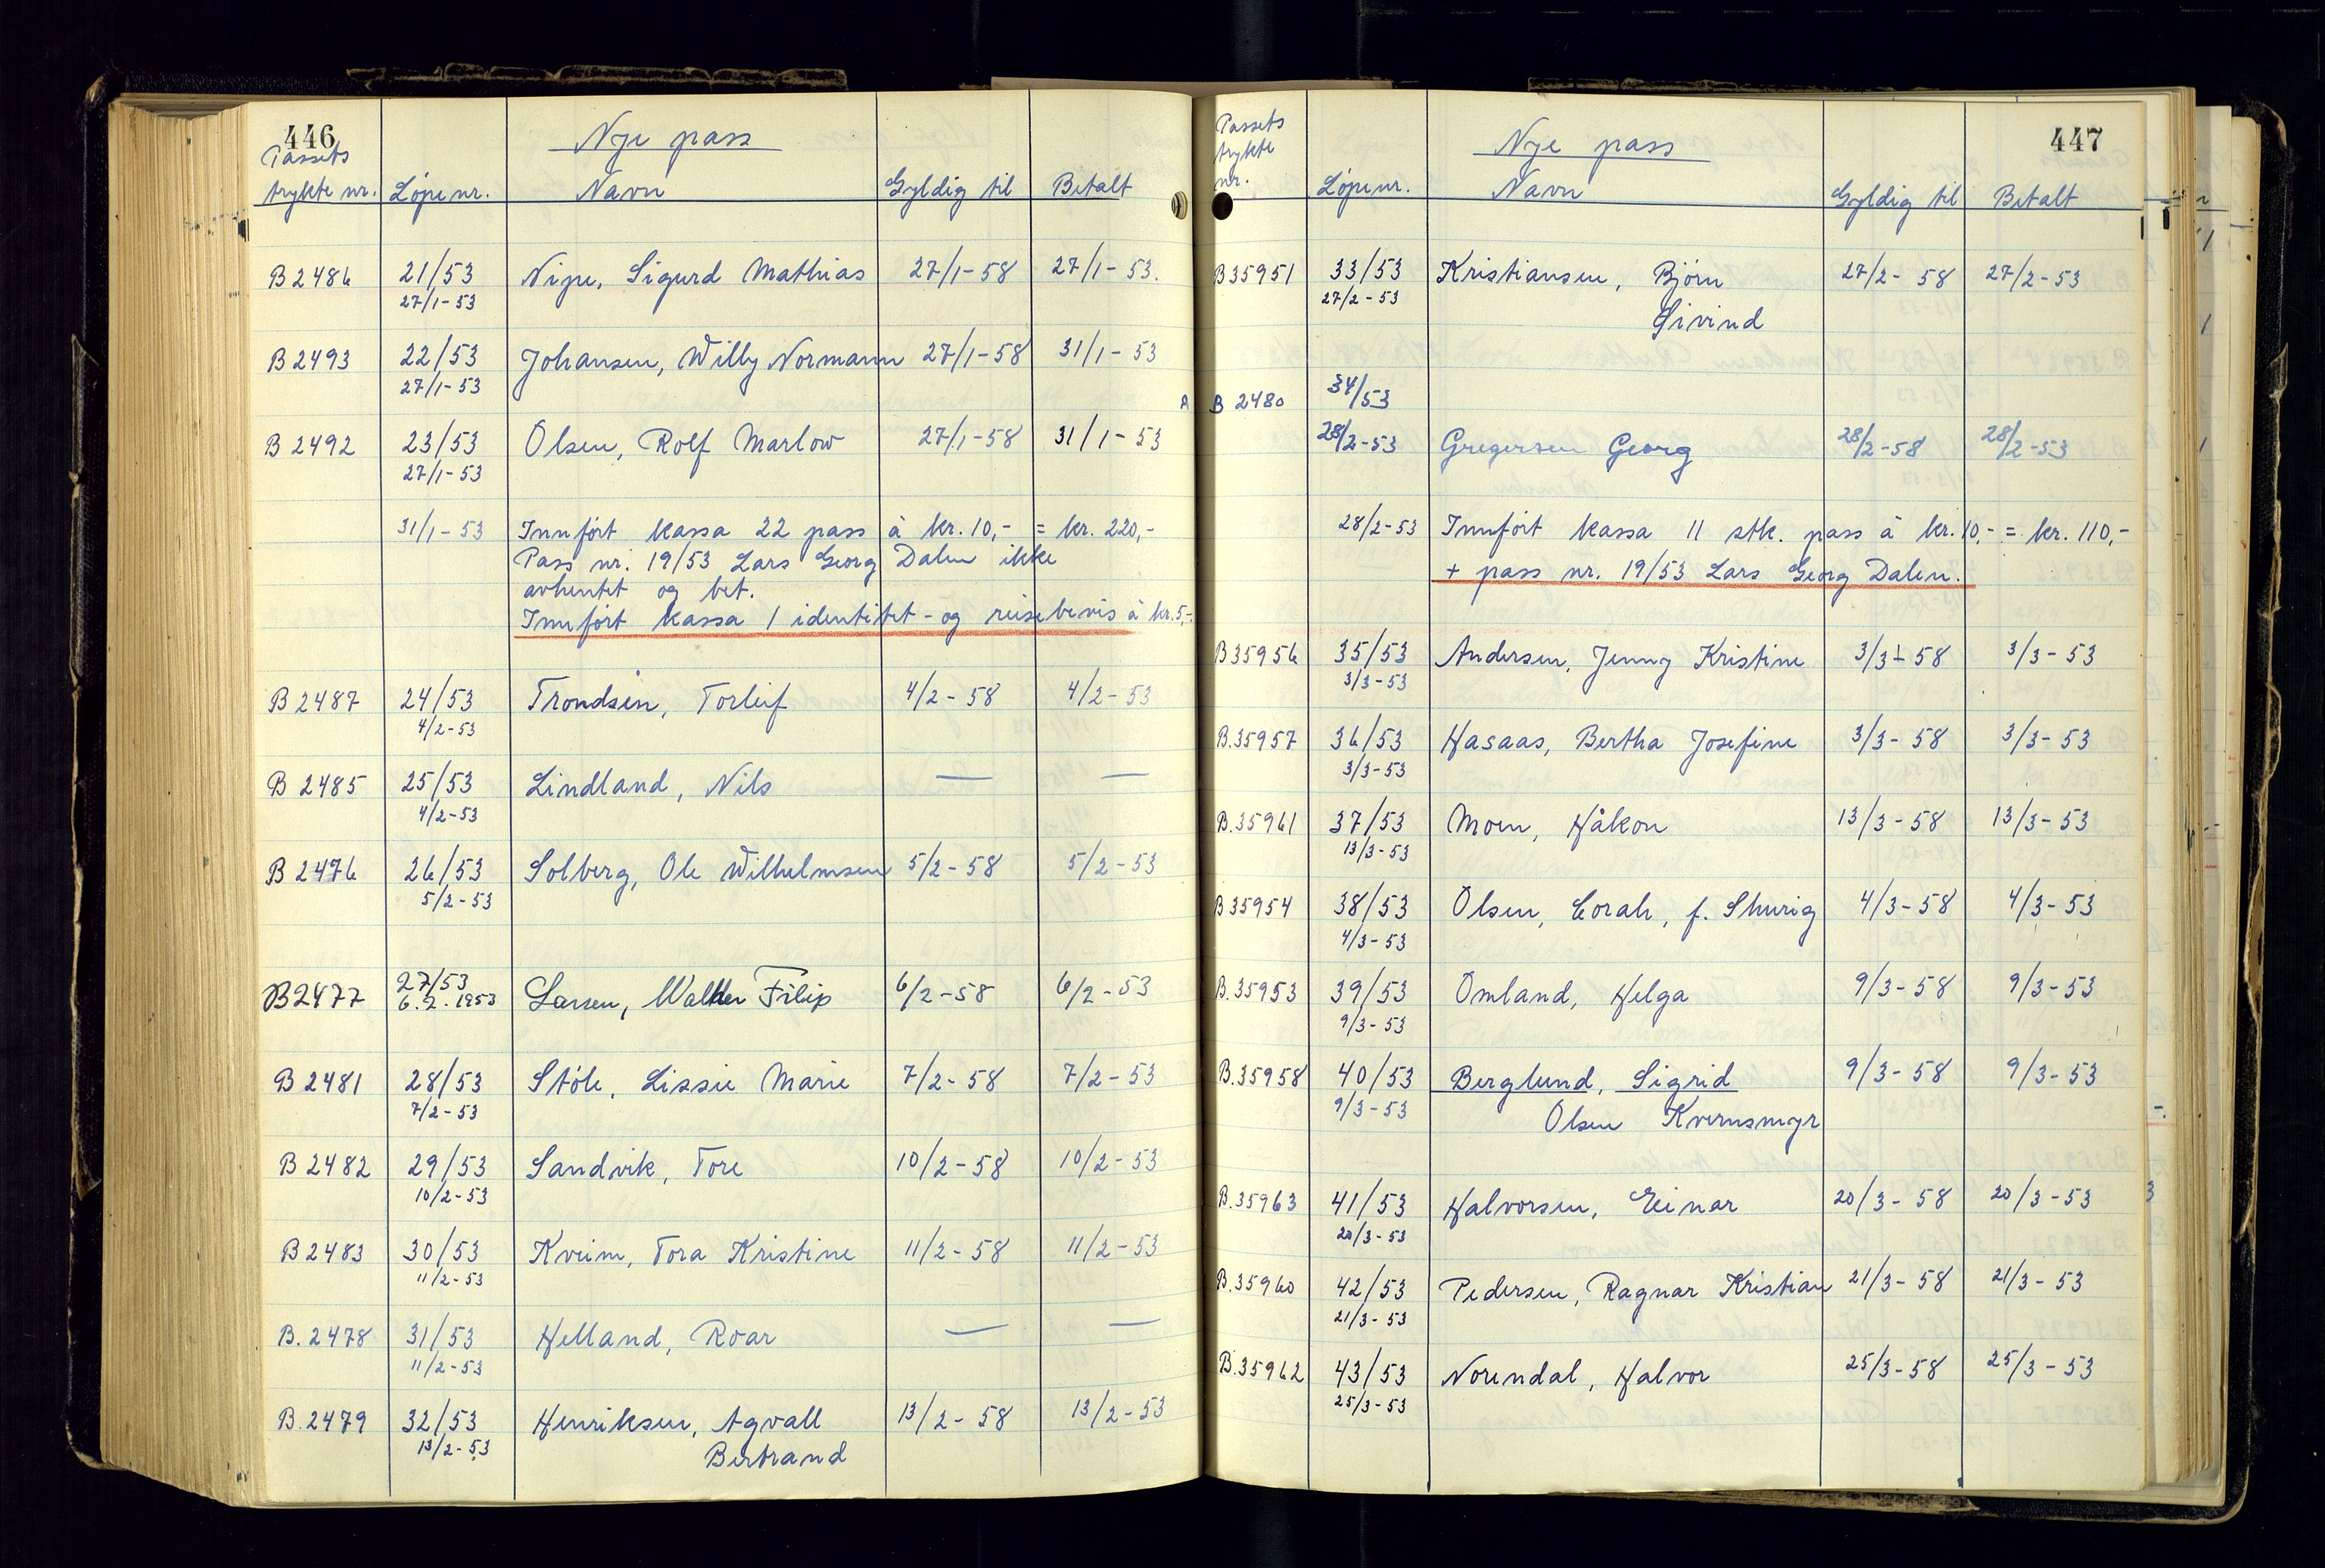 446
Nye pass
Passets
trykte nr. Löpe nr. Navn Gyldig til Betalt
B 2486 21/53 Nipe, Sigurd Mathias 27/1-58 27/1-53.
27/1-53
B 2493 22/53 Johansen, Willy Normann 27/1-58 31/1-53
27/1-53
B 2492 23/53 Olsen, Rolf Marlow 27/1-58 31/1-53
27/1-53
31/1-53 Innfört kassa 22 pass à kr. 10,- = kr. 220,-
Pass nr. 19/53 Lars Georg Dalen ikke
avhentet og bet.
Innfört kassa 1 identitet- og reisebevis à kr. 5,-.
B 2487 24/53 Trondsen, Torleif 4/2-58 4/2-53
4/2-53
B 2485 25/53 Lindland, Nils — —
4/2-53
B 2476 26/53 Solberg, Ole Wilhelmsen 5/2-58 5/2-53
5/2-53
B2477 27/53 Larsen, Walther Filip 6/2-58 6/2-53
6.2.1953
B 2481 28/53 Stöle, Lissie Marie 7/2-58 7/2-53
7/2-53
B 2482 29/53 Sandvik, Tore 10/2-58 10/2-53
10/2-53
B 2483 30/53 Kveim, Tora Kristine 11/2-58 11/2-53
11/2-53
B. 2478 31/53 Helland, Roar — —
11/2-53
B. 2479 32/53 Henriksen, Agvall 13/2-58 13/2-53
13/2-53 Bertrand
447
Nye pass
Passets
trykte
nr. Löpe nr. Navn Gyldig til Betalt
B35951 33/53 Kristiansen, Björn 27/2-58 27/2-53
27/2-53 Eivind
A B 2480 34/53
28/2-53 Gregersen Georg 28/2-58 28/2-53
28/2-53 Innfört kassa 11 stk. pass à kr. 10,- = kr. 110,-
+ pass nr. 19/53 Lars Georg Dalen.
B35956 35/53 Andersen, Jenny Kristine 3/3-58 3/3-53
3/3-53
B.35957 36/53 Hasaas, Bertha Josefine 3/3-58 3/3-53
3/3-53
B.35961 37/53 Moen, Håkon 13/3-58 13/3-53
13/3-53
B35954 38/53 Olsen, Corah, f. Shurig 4/3-58 4/3-53
4/3-53
B.35953 39/53 Omland, Helga 9/3-58 9/3-53
9/3-53
B.35958 40/53 Berglund, Sigrid 9/3-58 9/3-53
9/3-53 Olsen Kvernsmyr
B.35963 41/53 Halvorsen, Einar 20/3-58 20/3-53
20/3-53
B.35960 42/53 Pedersen, Ragnar Kristian 21/3-58 21/3-53
21/3-53
B.35962 43/53 Norendal, Halvor 25/3-58 25/3-53
25/3-53